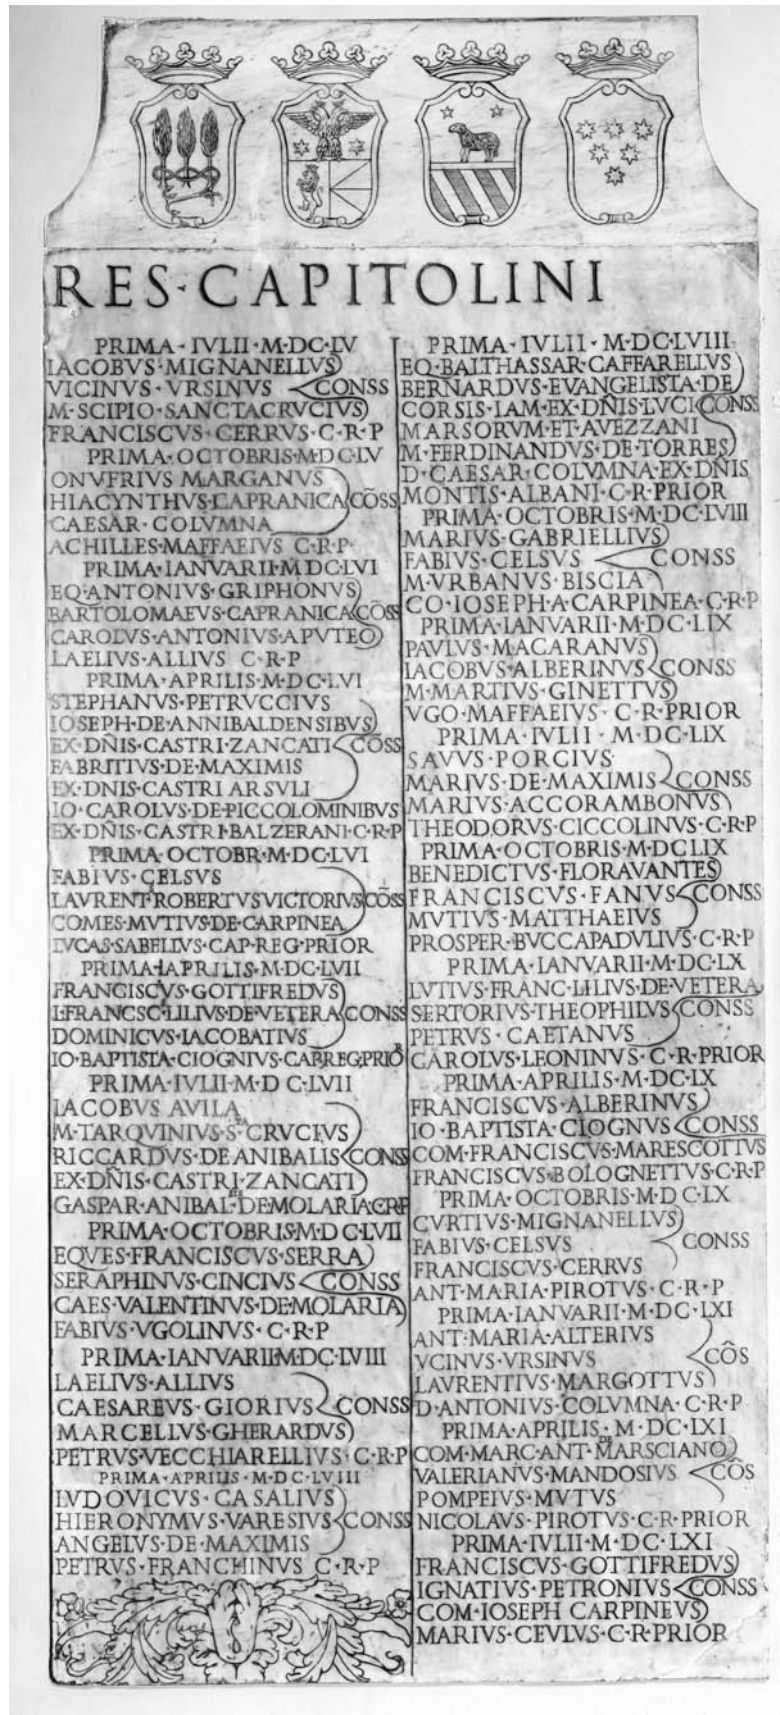 RES·CAPITOLINI
PRIMA·IVLII·M·DC·LV
IACOBVS·MIGNANELLVS
VICINVS·VRSINVS CONSS
M·SCIPIO·SANCTACRVCIVS
FRANCISCVS·CERRVS·C·R·P
PRIMA·OCTOBRIS·M·DC·LV
ONVFRIVS MARGANVS
HIACYNTHVS·CAPRANICA CÕSS
CAESAR·COLVMNA
ACHILLES·MAFFAEIVS C·R·P·
PRIMA·IANVARII·M·DC·LVI
EQ·ANTONIVS·GRIPHONVS
BARTOLOMAEVS·CAPRANICA CÕSS
CAROLVS·ANTONIVS·A PVTEO
LAELIVS·ALLIVS C·R·P
PRIMA·APRILIS·M·DC·LVI
STEPHANVS·PETRVCCIVS
IOSEPH·DE·ANNIBALDENSIBVS
EX·DÑIS·CASTRI·ZANCATI CÕSS
FABRITIVS·DE·MAXIMIS
EX·DNIS·CASTRI ARSVLI
IO·CAROLVS·DE·PICCOLOMINIBVS
EX·DÑIS·CASTRI·BALZERANI·C·R·P
PRIMA·OCTOBR·M·DC·LVI
FABIVS·CELSVS
LAVRENT·ROBERTVS VICTORIVS CÕSS
COMES·MVTIVS·DE·CARPINEA
LVCAS·SABELIVS·CAP·REG·PRIOR
PRIMA·APRILIS·M·DC·LVII
FRANCISCVS·GOTTIFREDVS
L·FRANCSC·LILIVS·DE·VETERA CONSS
DOMINICVS·IACOBATIVS
IO·BAPTISTA·CIOGNIVS·CAP·REG·PRIOR
PRIMA·IVLII·M·D C·LVII
IACOBVS AVILA
M·TARQVINIVS·S·TA CRVCIVS
RICCARDVS·DE ANIBALIS CONSS
EX·DÑIS·CASTRI·ZANCATI
GASPAR·ANIBAL·DE·MOLARIA·C·R·P
PRIMA·OCTOBRIS·M·D C·LVII
EQVES·FRANCISCVS·SERRA
SERAPHINVS·CINCIVS CONSS
CAES·VALENTINVS·DE·MOLARIA
FABIVS·VGOLINVS·C·R·P
PRIMA·IANVARII·M·DC·LVIII
LAELIVS·ALLIVS
CAESAREVS·GIORIVS CONSS
MARCELLVS·GHERARDVS
PETRVS·VECCHIARELLIVS·C·R·P
PRIMA·APRILIS·M·D C·LVIII
LVDOVICVS·CASALIVS
HIERONYMVS·VARESIVS CONSS
ANGELVS·DE·MAXIMIS
PETRVS·FRANCHINVS C·R·P
PRIMA·IVLII·M·DC·LVIII
EQ·BALTHASSAR·CAFFARELLVS
BERNARDVS·EVANGELISTA·DE
CORSIS·IAM·EX·DÑIS·LVCI CONSS
MARSORVM·ET·AVEZZANI
M·FERDINANDVS·DE·TORRES
D·CAESAR·COLVMNA·EX·DÑIS
MONTIS·ALBANI·C·R·PRIOR
PRIMA·OCTOBRIS·M·DC·LVIII
MARIVS·GABRIELLIVS
FABIVS·CELSVS CONSS
M·VRBANVS·BISCIA
CO·IOSEPH·A·CARPINEA·C·R·P
PRIMA·IANVARII·M·DC·LIX
PAVLVS·MACARANVS
IACOBVS·ALBERINVS CONSS
M·MARTIVS·GINETTVS
VGO·MAFFAEIVS·C·R·PRIOR
PRIMA·IVLII·M·DC·LIX
SAVVS·PORCIVS
MARIVS·DE·MAXIMIS CONSS
MARIVS·ACCORAMBONVS
THEODORVS·CICCOLINVS·C·R·P
PRIMA·OCTOBRIS·M·DC LIX
BENEDICTVS·FLORAVANTES
FRANCISCVS·FANVS CONSS
MVTIVS·MATTHAEIVS
PROSPER·BVCCAPADVLIVS·C·R·P
PRIMA·IANVARII·M·DC·LX
LVTIVS·FRANC·LILIVS·DE·VETERA
SERTORIVS·THEOPHILVS CONSS
PETRVS·CAETANVS
CAROLVS·LEONINVS·C·R·PRIOR
PRIMA·APRILIS·M·DC·LX
FRANCISCVS·ALBERINVS
IO·BAPTISTA·CIOGNVS CONSS
COM·FRANCISCVS·MARESCOTTVS
FRANCISCVS·BOLOGNETTVS·C·R·P
PRIMA·OCTOBRIS·M·D C·LX
CVRTIVS·MIGNANELLVS
FABIVS·CELSVS CONSS
FRANCISCVS·CERRVS
ANT·MARIA·PIROTVS·C·R·P
PRIMA·IANVARII·M·DC·LXI
ANT·MARIA·ALTERIVS
VCINVS·VRSINVS CÕS
LAVRENTIVS·MARGOTTVS
D·ANTONIVS·COLVMNA·C·R·P
PRIMA·APRILIS·M·DC·LXI
COM·MARC·ANT·DE MARSCIANO
VALERIANVS·MANDOSIVS CÕS
POMPEIVS·MVTVS
NICOLAVS·PIROTVS·C·R·PRIOR
PRIMA·IVLII·M·DC·LXI
FRANCISCVS·GOTTIFREDVS
IGNATIVS·PETRONIVS CONSS
COM·IOSEPH CARPINEVS
MARIVS·CEVLVS·C·R·PRIOR